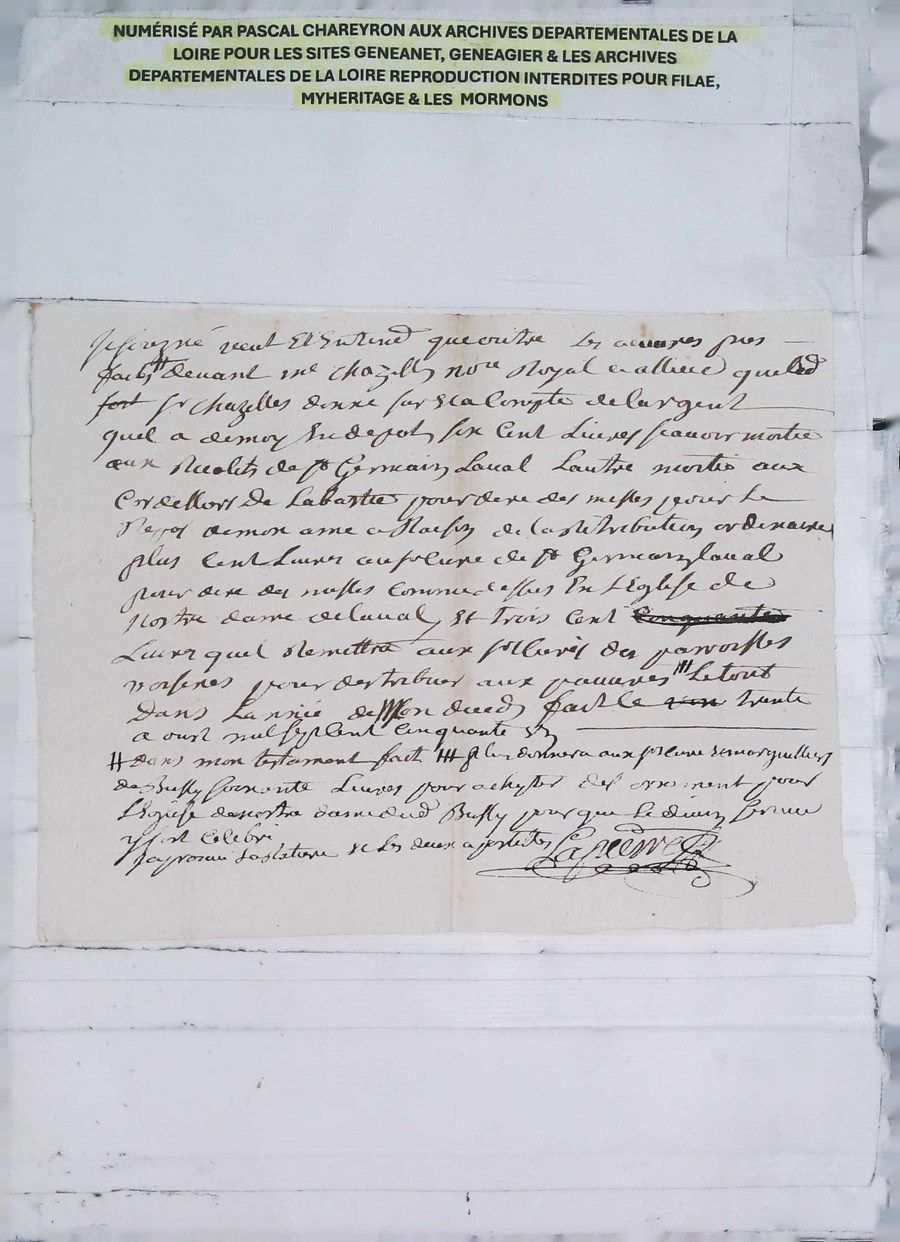 NUMÉRISÉ PAR PASCAL CHAREYRON AUX ARCHIVES DEPARTEMENTALES DE LA
LOIRE POUR LES SITES GENEANET, GENEAGIER & LES ARCHIVES
DEPARTEMENTALES DE LA LOIRE REPRODUCTION INTERDITES POUR FILAE,
MYHERITAGE & LES MORMONS
Je soucigné veut Et Entend que outre Les
faits devant me chazelles nore Royal
sr chazelles donne sur Et a Compte de largent
quel a de moy En depot six Cent Livres scavoir moitie
aux Recolets de st Germain Laval Lautre moitie aux
Cordelliers De Labastie pour dire des messes pour Le
Repos de mon ame a Raison de la Retribution ordinaire
plus Cent Livres au sr Cure de st Germain laval
pour dire des messes Comme dessus En LEglise de
Nostre dame de laval, Et trois Cent cinquante
Livres quel Remettra aux srs Curés des parroisses
voisines pour distribuer aux pauvres Le tout
Dans Lannée de Mon deceds fait le trente
aout mil sept Cent Cinquante
dans mon testament fait plus donnera aux sr Cure Et marguilliers
de Bussy soixante Livres pour achepter des ornement pour
LEglise de nostre dame dud Bussy pour que Le divin service
y soit Celebré